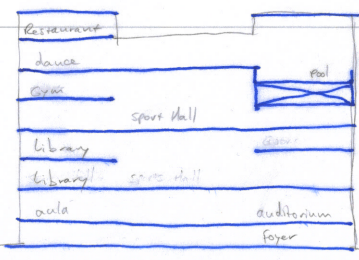 Restaurant
dance
Pool
Gym
sport Hall
Library
Library
aula auditorium
foyer